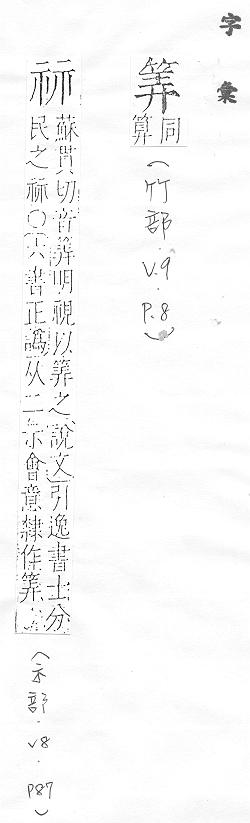 字彙
筭
同算
(竹部.V.9.P.8)
祘
蘇貫切音筭明視以筭之說文引逸書士分
民之祘○六書正譌从二示會意隸作筭
(示部.V8.P87)